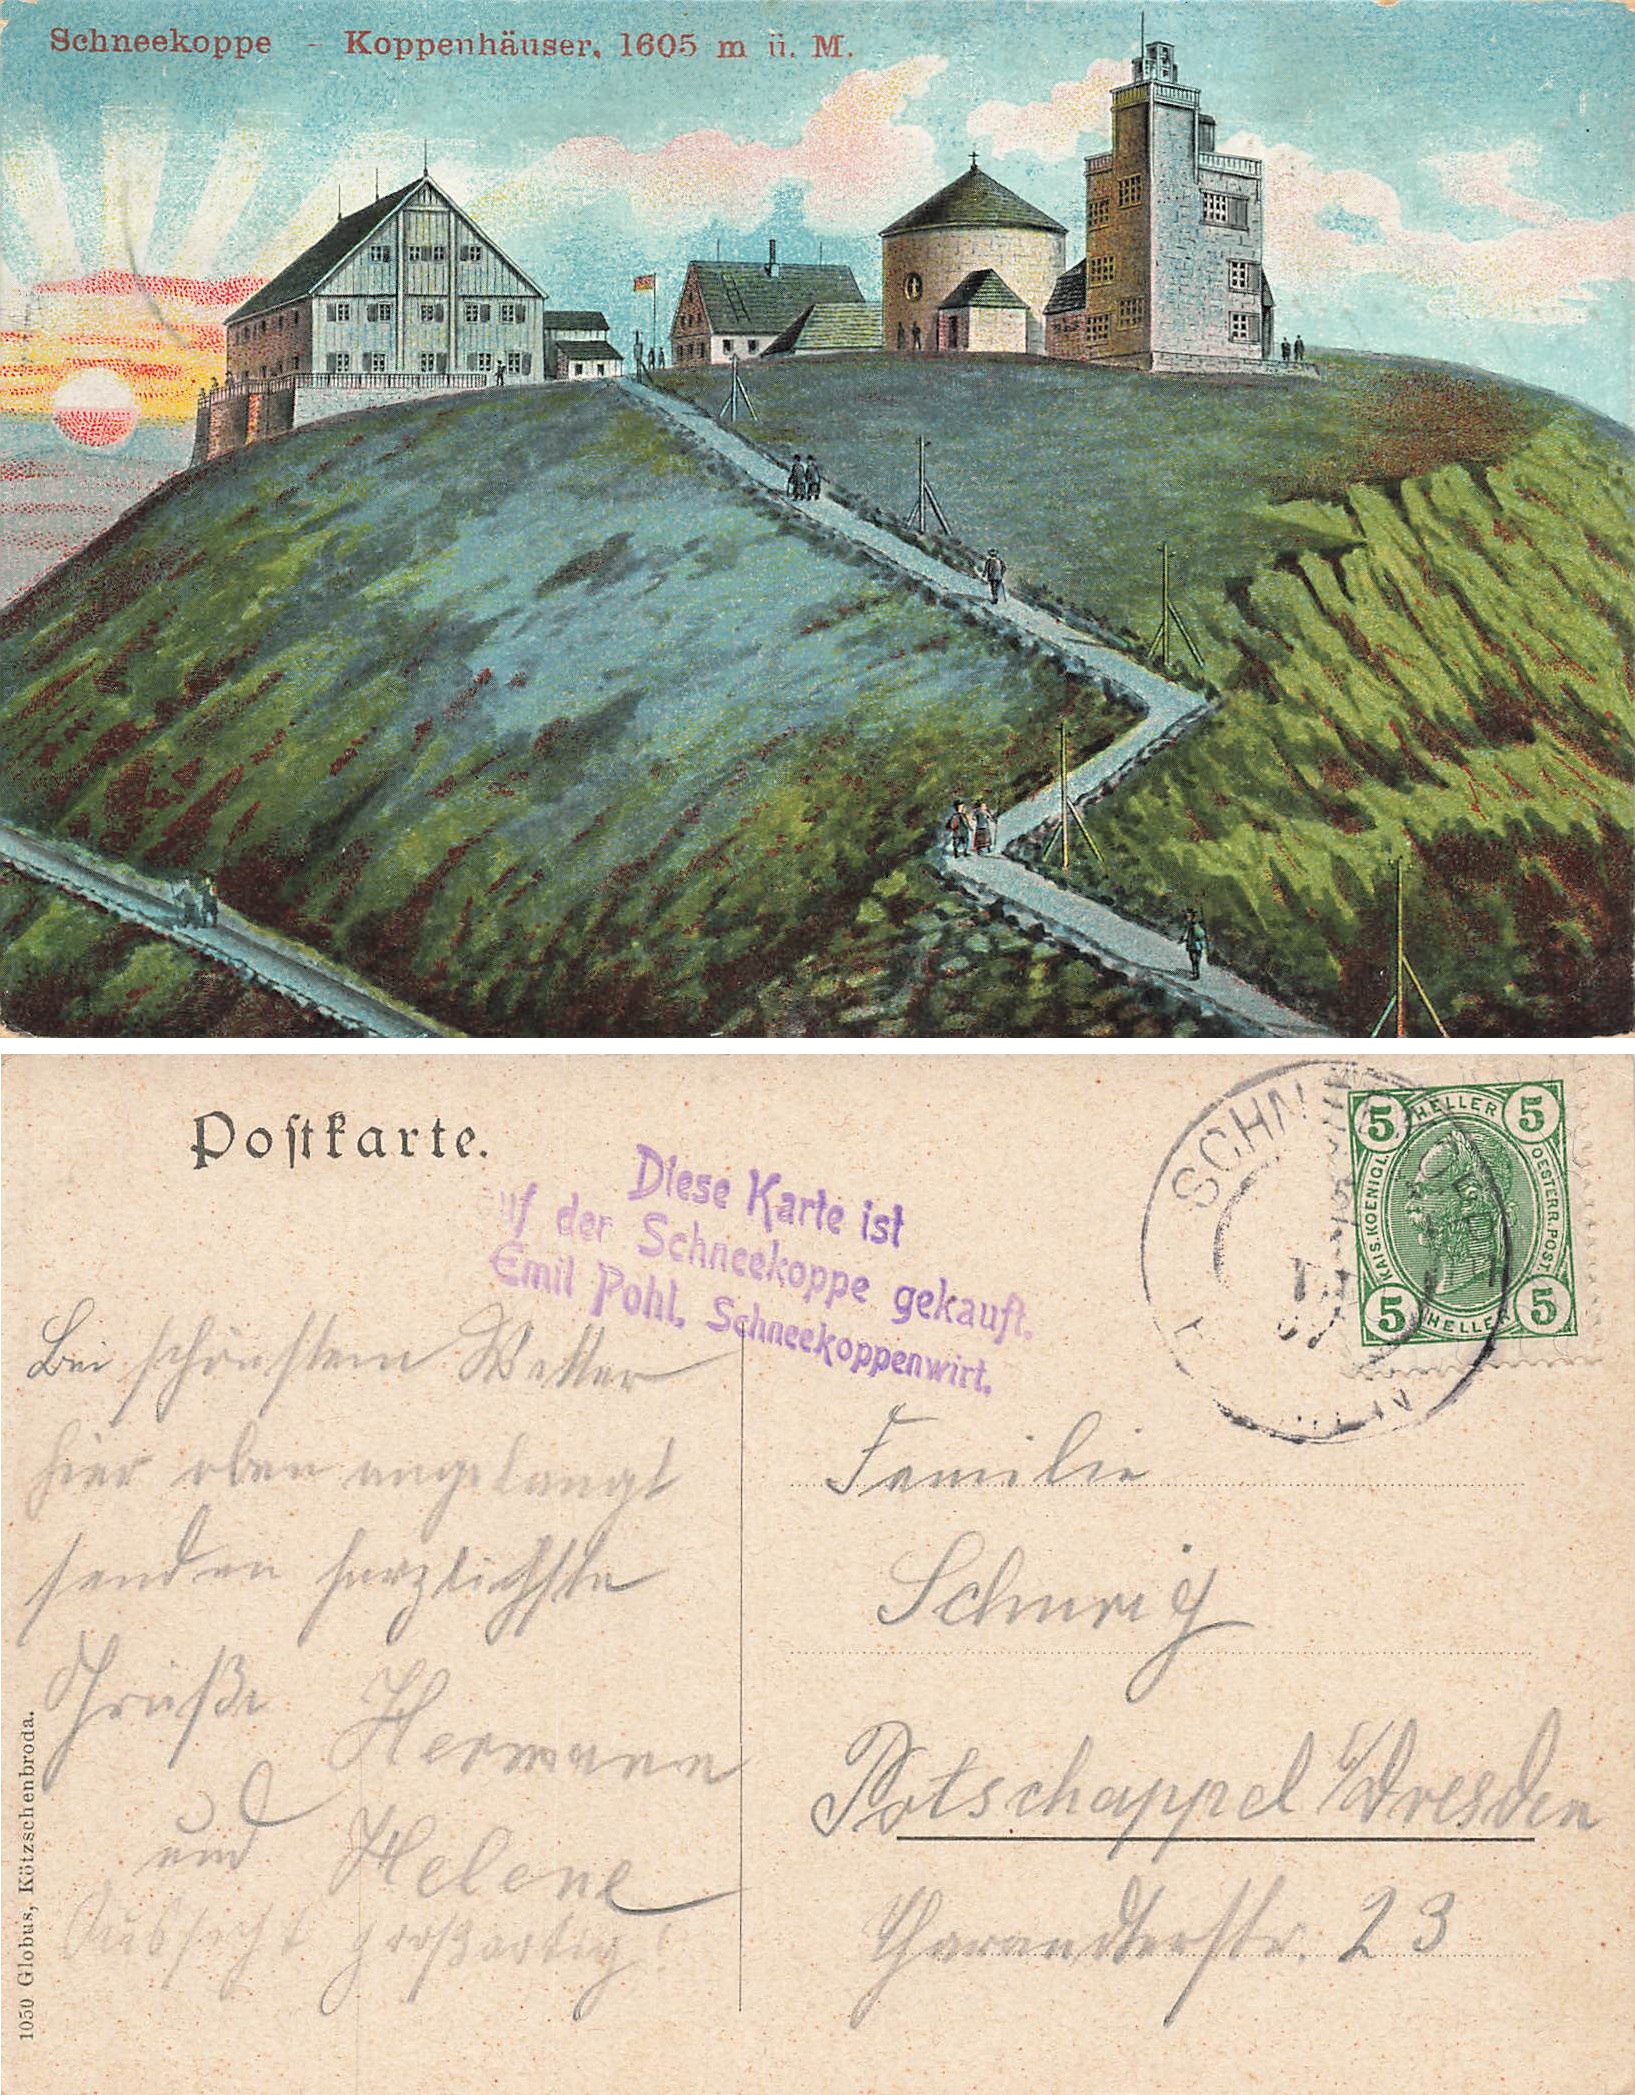 Schneekoppe – Koppenhäuser, 1605 m ü. M.
Postkarte.
Diese Karte ist
auf der Schneekoppe gekauft.
Emil Pohl, Schneekoppenwirt.
5 HELLER 5
KAIS. KOENIGL. OESTERR. POST.
5 HELLER 5
SCHN
Bei schönstem Wetter
hier oben angelangt
senden herzlichste
Grüße Hermann
und Helene
Aussicht großartig!
Familie
Schurig
Potschappel b/Dresden
Tharandterstr. 23
1050 Globus, Kötzschenbroda.